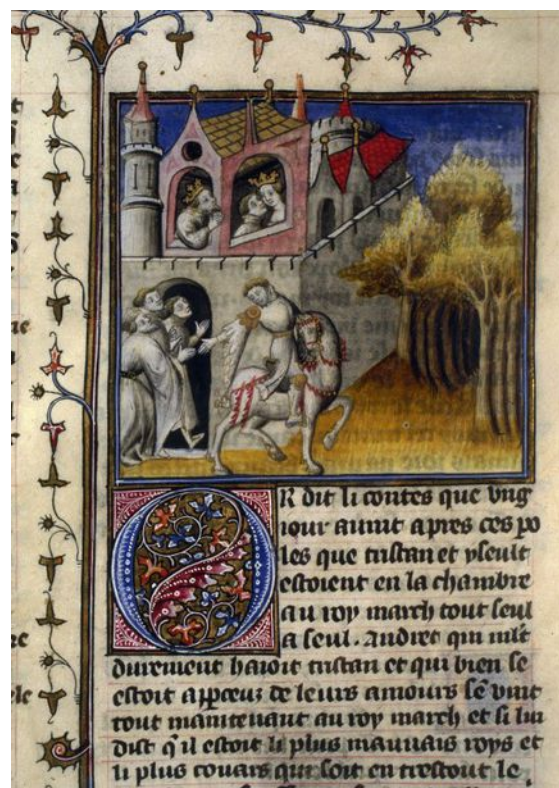 OR dit li contes que vng
iour auint apres ces po
les que tristan et yseult
estoient en la chambre
au roy march tout seul
a seul. Andret qui mlt
durement haioit tristan et qui bien se
estoit apceuz de leurs amours sẽ vint
tout maintenant au roy march et si lui
dist q̃ il estoit li plus mauuais roys et
li plus couars qui soit en trestout le